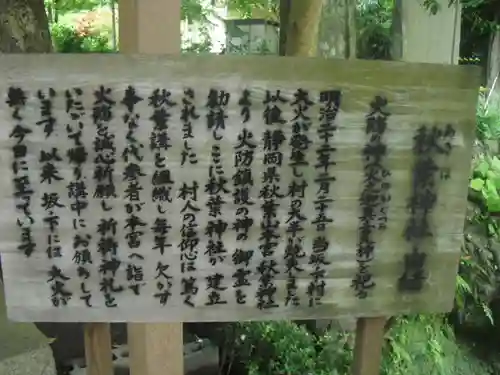 秋葉神社
あきは
火防の神
明治二十三年一月二十五日 当坂下村に
大火が発生し村の大半が焼失 また
以後 静岡県秋葉山本宮秋葉神社
より 火防鎮護の神の 御霊を
勧請し ここに秋葉神社が 建立
されました 村人の信仰心は篤く
秋葉講を組織し毎年 欠かす
事なく代参者が本宮へ詣で
火防を誠心祈願し 祈祷神札を
いただいて帰り講中に お頒ちして
います 以来 坂下には 大火が
無く今日に至っています